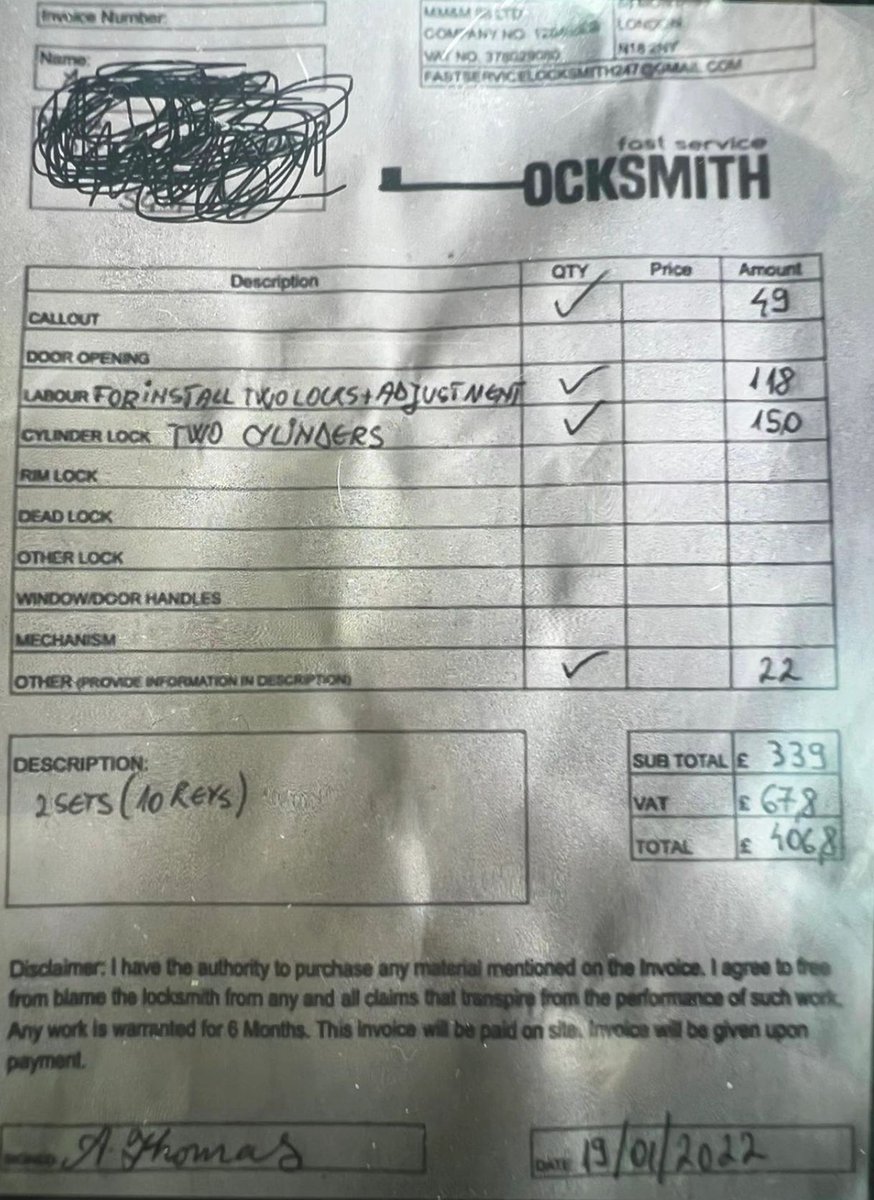 Invoice Number:
MM&M
LTD
COMPANY NO.
LONDON
VAT NO. 378029080
N18 2NY
Name:
FASTSERVICELOCKSMITH247@GMAIL.COM
fast service
LOCKSMITH
Description QTY Price Amount
CALLOUT ✓ 49
DOOR OPENING
LABOUR FOR iNSTALL TWO LOCKS + ADJUSTMENT ✓ 118
CYLINDER LOCK TWO CYLiNDERS ✓ 150
RIM LOCK
DEAD LOCK
OTHER LOCK
WINDOW/DOOR HANDLES
MECHANISM
OTHER (PROVIDE INFORMATION IN DESCRIPTION) ✓ 22
DESCRIPTION:
2 SETS (10 KEYS)
SUB TOTAL £ 339
VAT £ 67,8
TOTAL £ 406,8
Disclaimer: I have the authority to purchase any material mentioned on the Invoice. I agree to free
from blame the locksmith from any and all claims that transpire from the performance of such work.
Any work is warranted for 6 Months. This Invoice will be paid on site. Invoice will be given upon
payment.
A. Thomas
DATE 19/01/2022